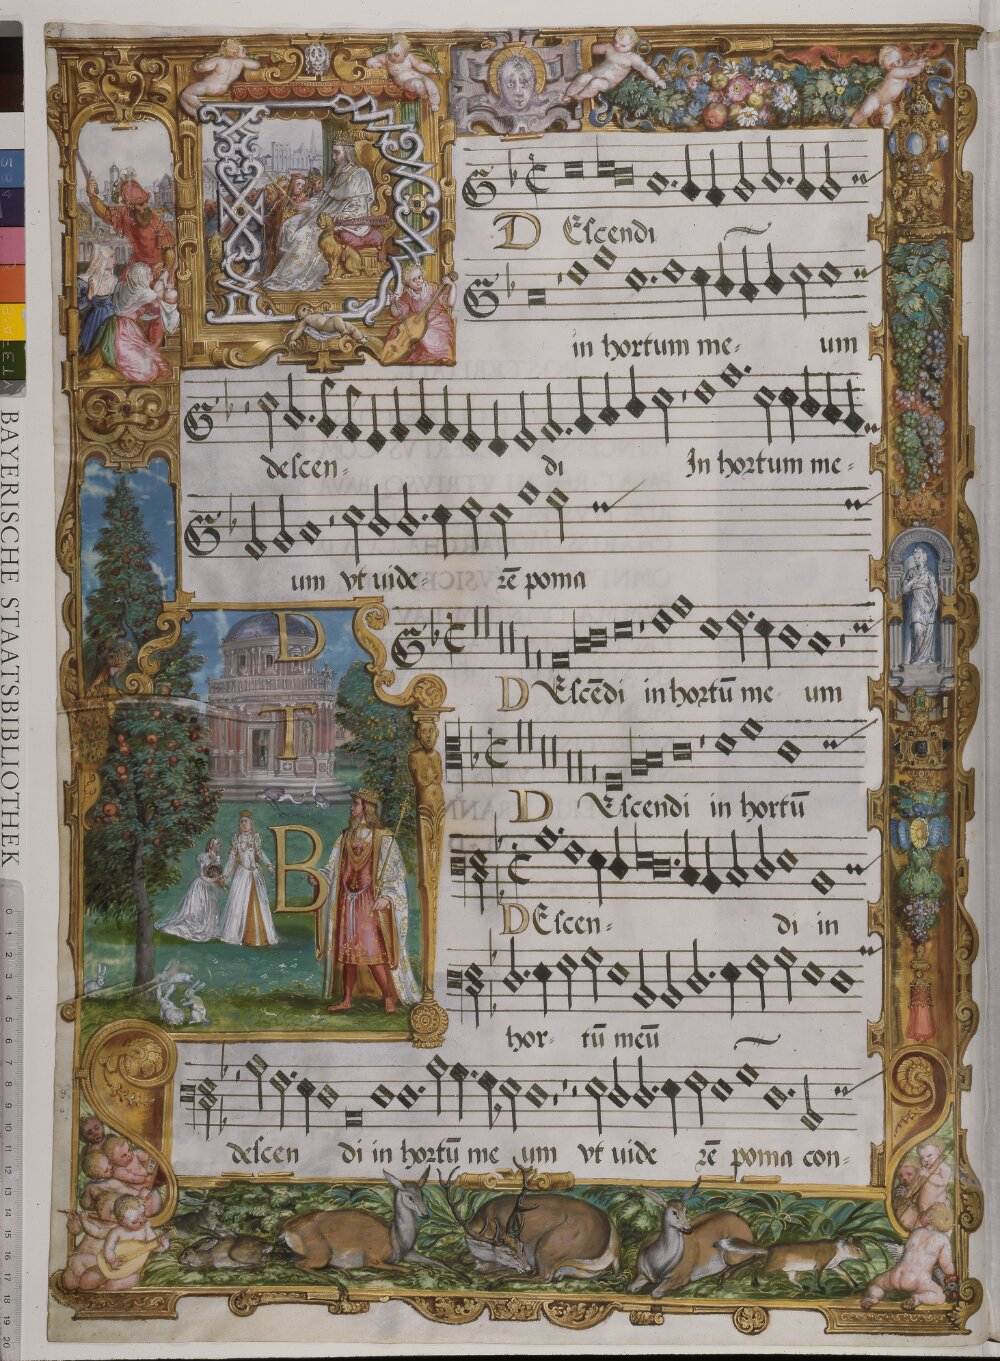 D Escendi
in hortum me- um
descen- di In hortum me-
um vt uide- rē poma
D Escēdi in hortū me um
D Escendi in hortū
D Escen- di in
hor- tū meū
descen di in hortū me um vt uide rē poma con-
D
T
B
BAYERISCHE STAATSBIBLIOTHEK
0 1 2 3 4 5 6 7 8 9 10 11 12 13 14 15 16 17 18 19 20